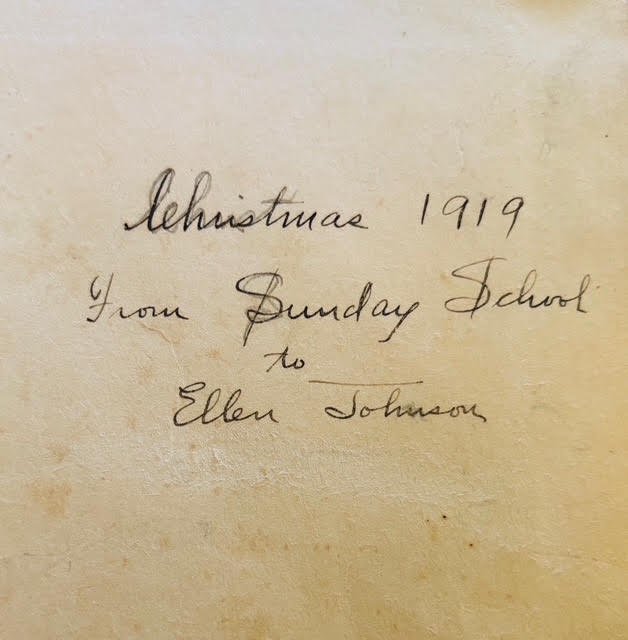 Christmas 1919
From Sunday School
to
Ellen Johnson